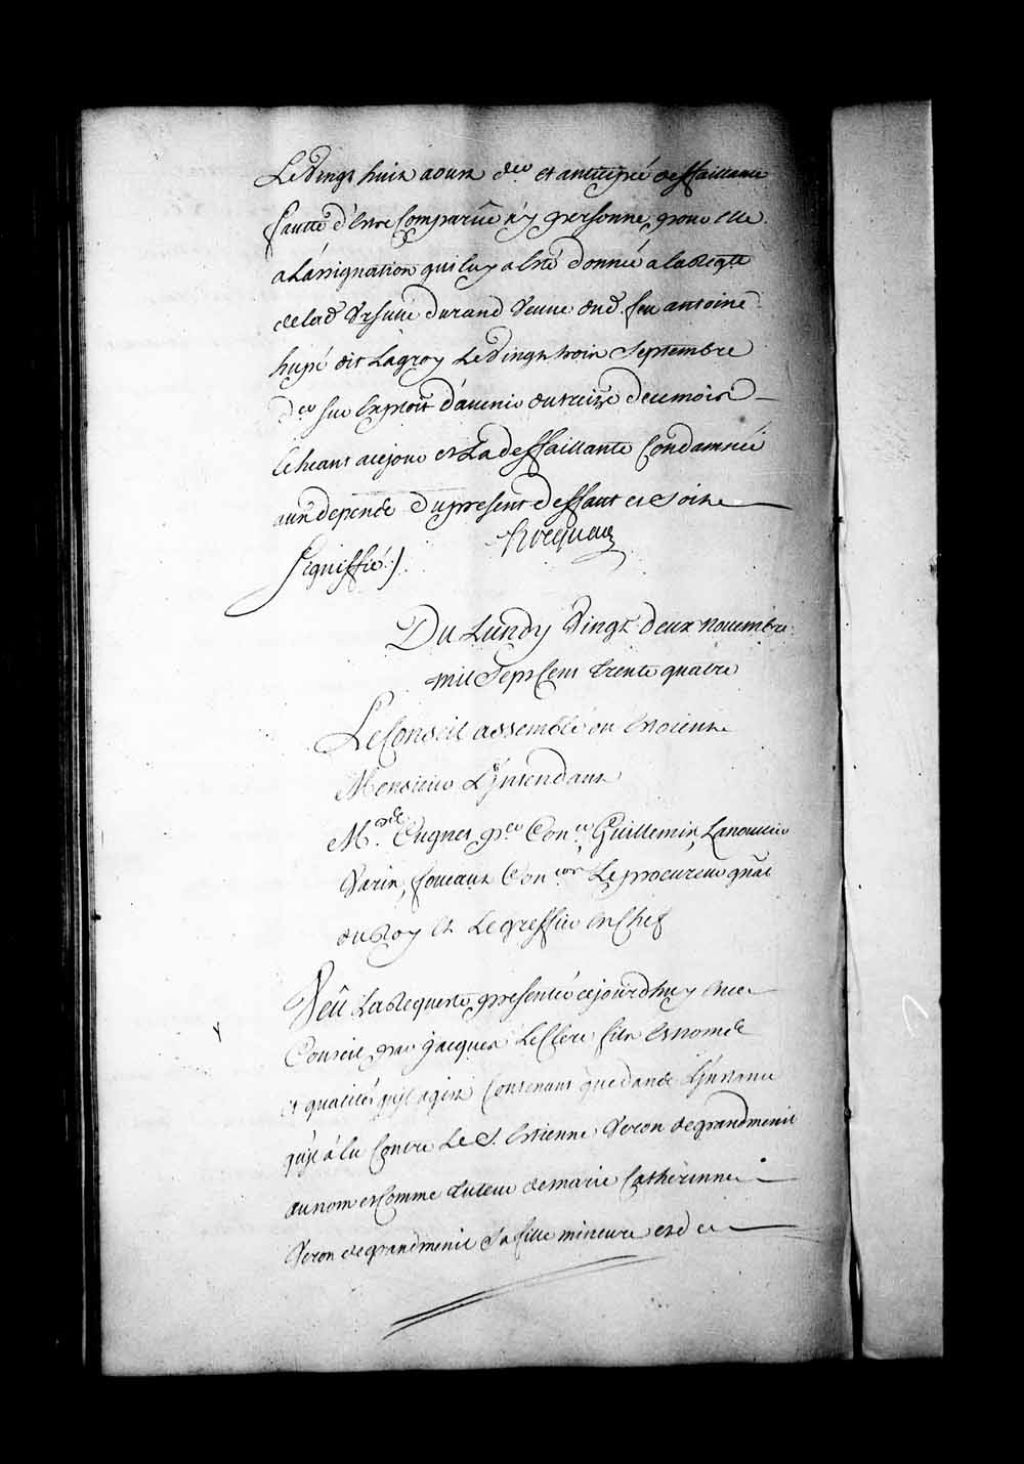 Le Vingt huit aoust d.er et anticipée deffaillante
fautte d'Estre Comparüe n'y personne pour elle
a L'assignation qui luy a Eté donnée a la Reqte
de lad Ursulle durand Veuve dud. feu antoine
hupé dit Lagroy Le Vingt trois Septembre
d.er sur Exploit d'avenir du treize de ce mois
Echeant a ce jour et La deffaillante Condamnée
aux depends du present deffaut et soit
Signiffié ./.
hocquart
Du Lundy Vingt deux novembre
mil Sept Cent trente quatre
Le Conseil assemblé ou Etoient
Monsieur L'Intendant
M.rs de Cugnet p.er Con.er Guillemin, Lanoullier
Varin, foucault Con.ers Le procureur gñal
du Roy Et Le greffier En Chef
Veû La Requeste presentée cejourdhuy En ce
Conseil par jacques LeClerc fils Es nom et
et qualités qu'il agist Contenant que dans L'Instance
qu'il a Eu Contre Le S. Estienne Veron de grandmenil
au nom et Comme tuteur de marie Catherinne
Veron de grandmenil Sa fille mineure et de